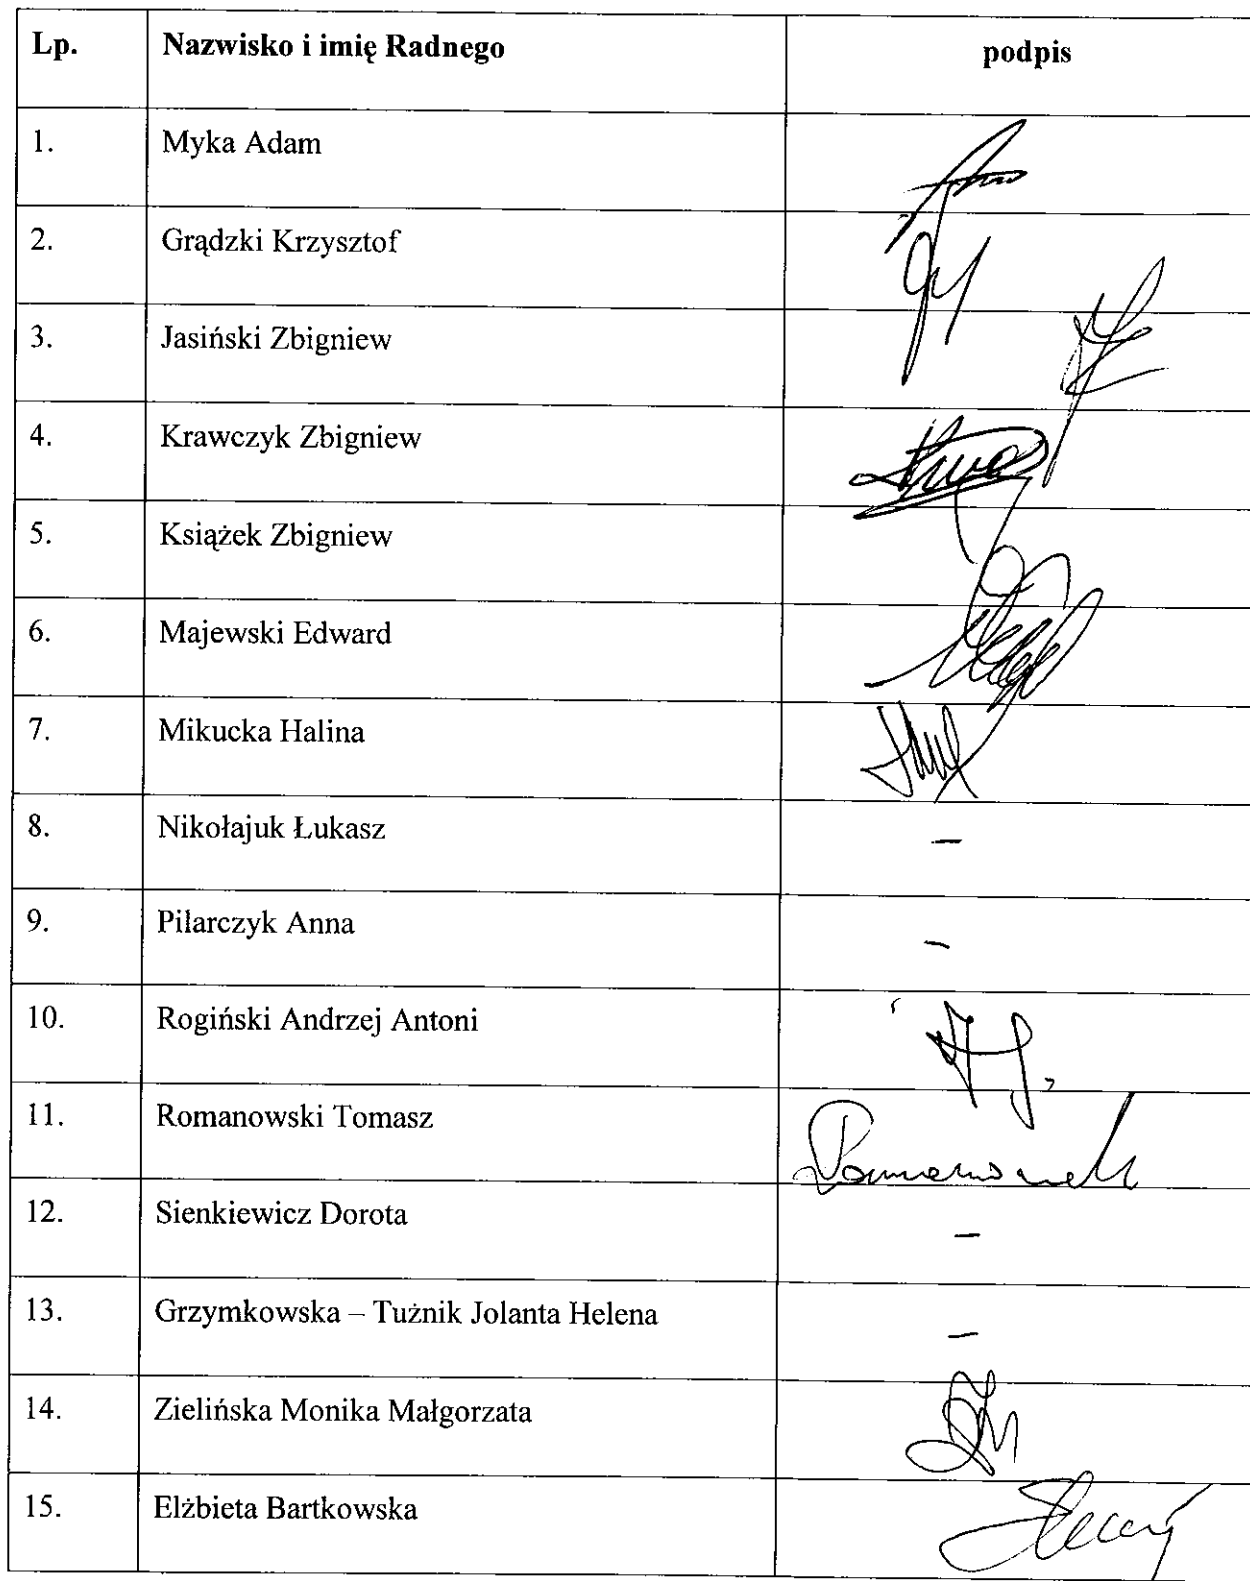 Lp. Nazwisko i imię Radnego podpis
1. Myka Adam
2. Grądzki Krzysztof
3. Jasiński Zbigniew
4. Krawczyk Zbigniew
5. Książek Zbigniew
6. Majewski Edward
7. Mikucka Halina
8. Nikołajuk Łukasz –
9. Pilarczyk Anna –
10. Rogiński Andrzej Antoni
11. Romanowski Tomasz
12. Sienkiewicz Dorota –
13. Grzymkowska – Tużnik Jolanta Helena –
14. Zielińska Monika Małgorzata
15. Elżbieta Bartkowska